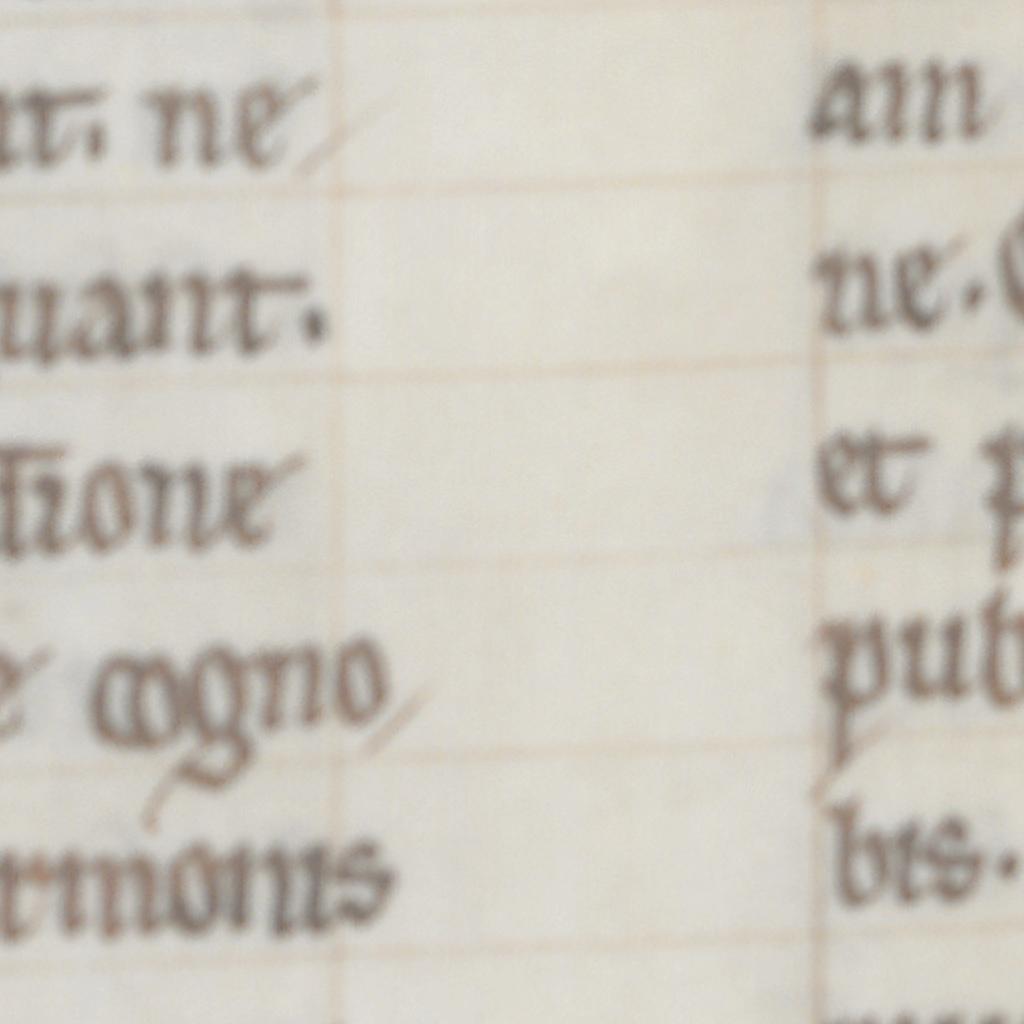 nt. ne
uant.
tione
e cogno
rmonis
am
ne.
et p
pub
bis.